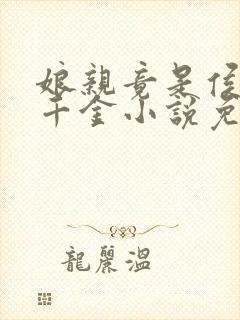 娘親竟是侯
千金小說免
龍麗溫